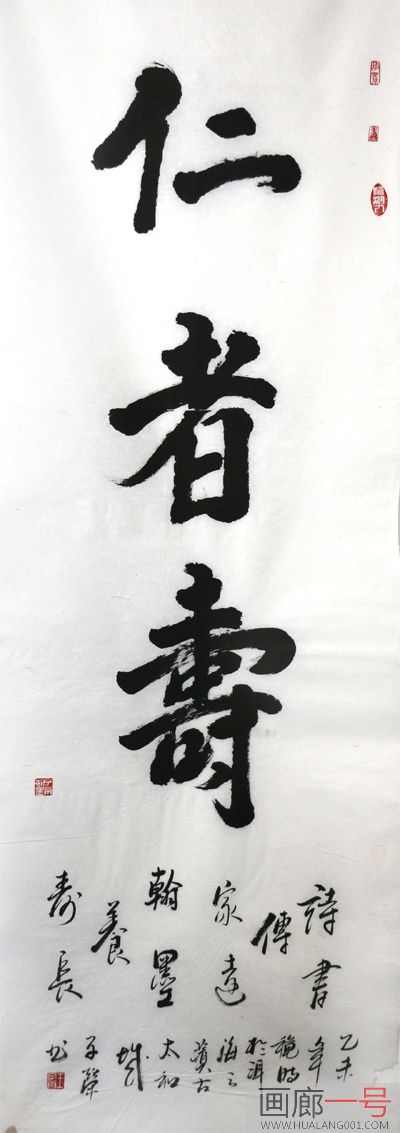 仁者壽
詩書
傳
家遠
翰墨
養
壽長
乙未
年
穐時
於洱
海之
太和
城
子榮
书
画廊一号
WWW.HUALANG001.COM